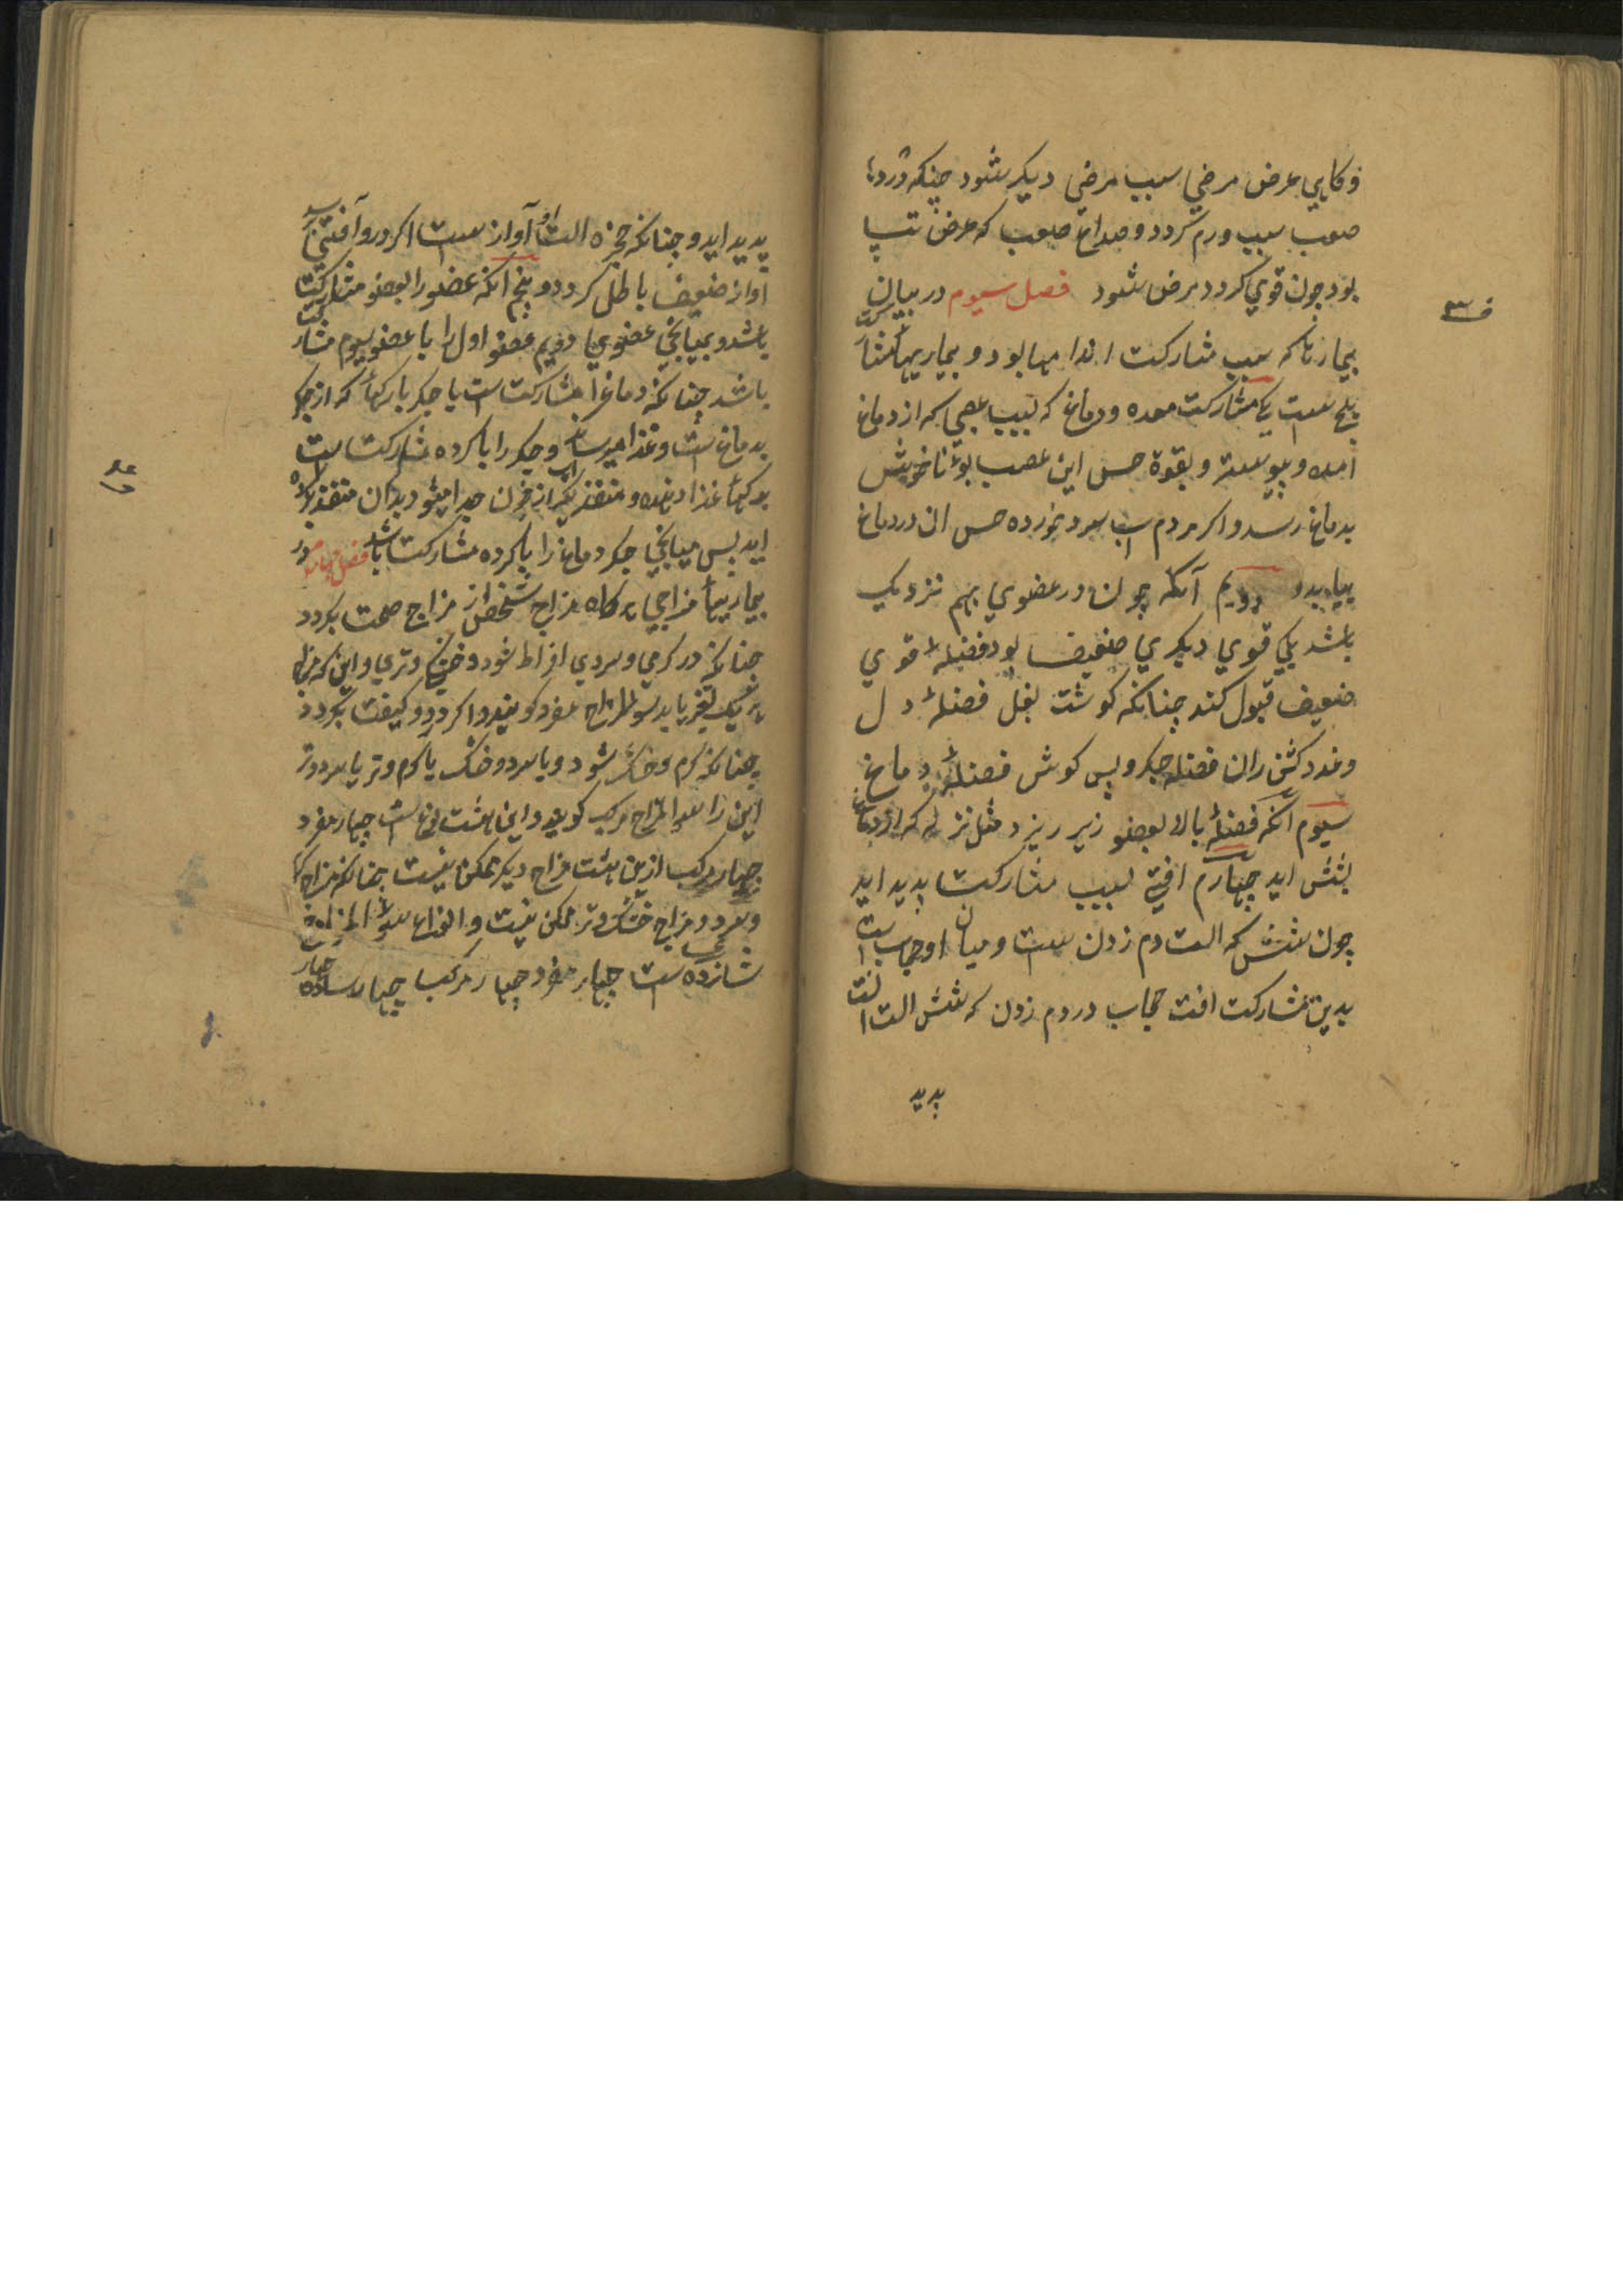 و کاهی عرض مرضی سبب مرضی دیکر شود چنانکه درد
صعب سبب ورم کردد و صداع صعب که عرض تپ
بود چون قوی کردد مرض شود فصل سیوم در بیان
بیماریها که سبب مشارکت اندامها بود و بیماریها مشارکت
پنج ست یکی مشارکت معده و دماغ که بسبب عصبی که از دماغ
امده و پیوسته و بقوة حس این عصب بوی ناخوش
بدماغ رسد و اکر مردم اب سرد خورده حس ان در دماغ
بیابد و دویم آنکه چون در عضوی بهم نزدیک
باشد یکی قوی دیکری ضعیف بود فضلهٔ قوی
ضعیف قبول کند چنانکه کوشت بغل فضلهٔ دل
و غدد کش ران فضله جکر و پس کوش فضلهٔ دماغ
سیوم آنکه فضلهٔ بالا بعضو زیر ریزد مثل نزله که از دماغ
بشش اید چهارم افتی بسبب مشارکت پدید اید
چون شش که الت دم زدن ست و میان او حجاب است
بدین مشارکت افت حجاب در دم زدن که شش الت
پدید
پدید اید و چنانکه حنجره الت او آواز ست اکر درو آفتی رسد
اواز ضعیف یا باطل کردد و پنجم انکه عضو را بعضو مشارکت
باشد و بمیانجی عضوی دویم عضو اول را با عضو سیوم مشارکت
باشد چنانکه دماغ را مشارکت ست با جکر بارکها که از جکر
بدماغ ست و غذا میرساند و جکر را با کرده مشارکت ست
برکها غذا دهنده و منفذ دیکر از خون جدا میشود بدان منفذ بکرده
اید پس میانجی جکر دماغ را با کرده مشارکت باشد فصل چهارم در
بیماریها مزاجی کاه مزاج شخص از مزاج صحت بکردد
چنانکه در کرمی و سردی افراط شود و خشکی و تری و این که مزاج
یک تغیر یابد سوء المزاج مفرد کویند و اکر در دو کیفیت بکردد
چنانکه کرم و خشک شود و یا سرد و خشک یا کرم و تر یا سرد و تر
این را سوء المزاج مرکب کویند و این هشت نوع ست چهار مفرد
چهار مرکب ازین هشت مزاج دیکر ممکن نیست چنانکه مزاج کرم
و سرد و مزاج خشک و تر ممکن نیست و انواع سوء المزاج
شانزده ست چهار مفرد چهار مرکب چهار ساده چهار